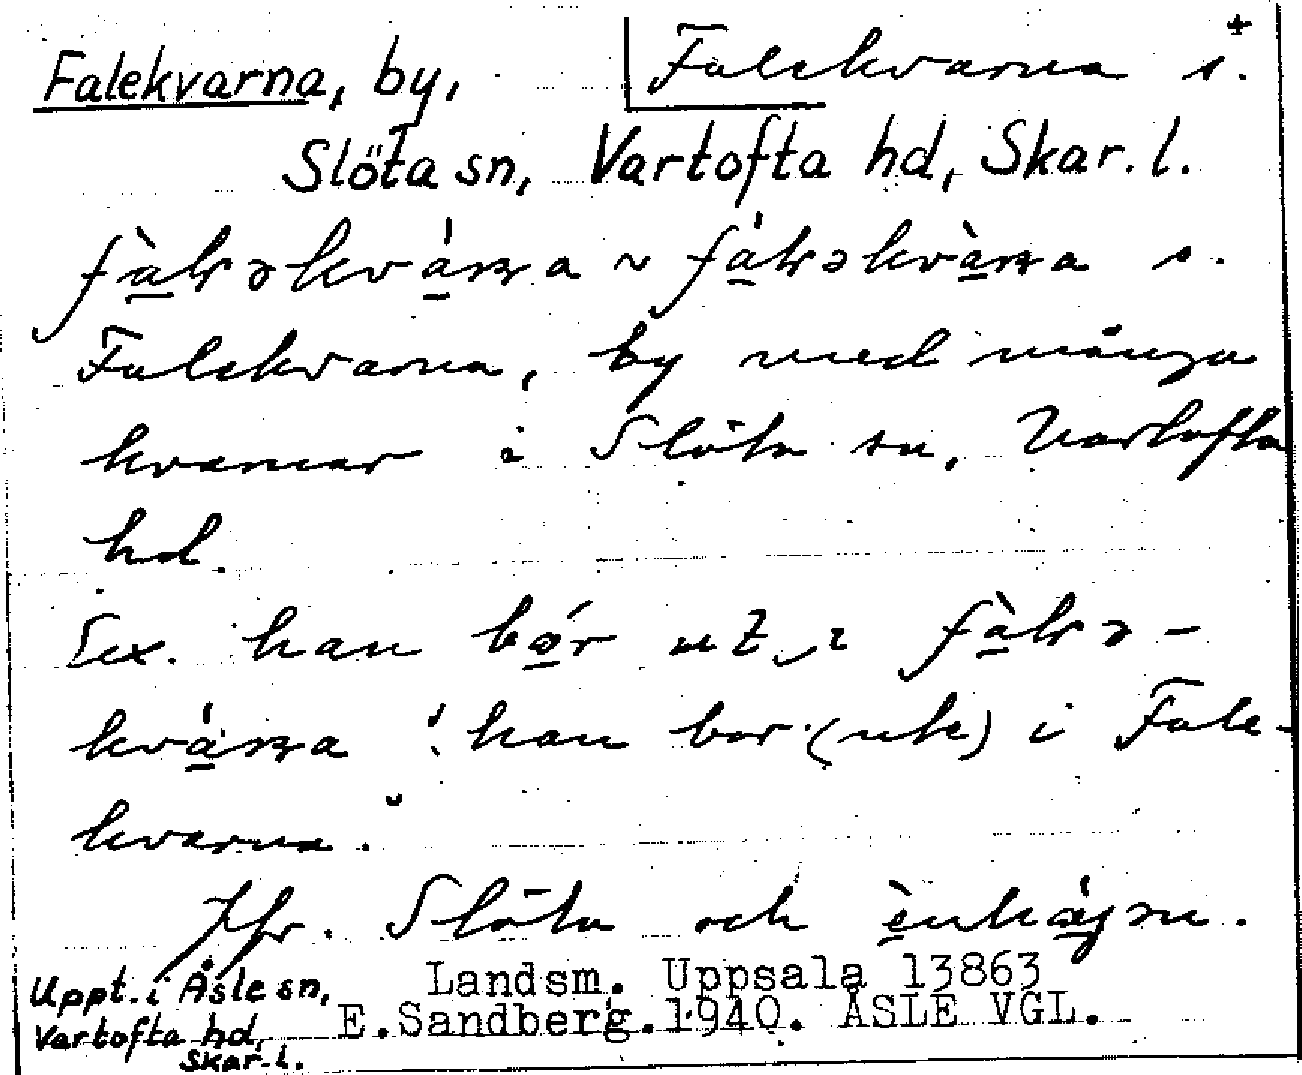 Falekvarna, by,
Falekvarna s.
Slöta sn, Vartofta hd, Skar. l.
s.
Falekvarna, by med många
kvarnar i Slöta sn, Vartofta
hd.
Ex. han bor ut i
kvarna '. han bor (ute) i Fale-
kvarna."
Jfr. Slöta och
Uppt. i Åsle sn,
Vartofta hd,
Skar. l.
Landsm. Uppsala 13863
E.Sandberg.1940. ÅSLE VGL.